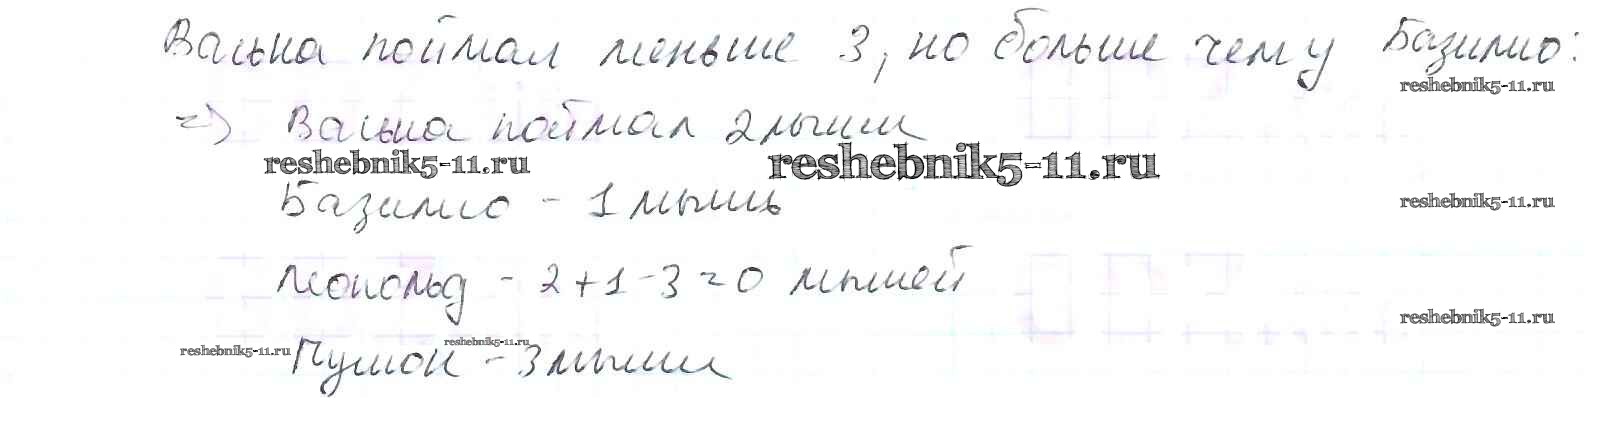 Васька поймал меньше 3, но больше чем у Базилио:
reshebnik5-11.ru
=> Васька поймал 2 мыши
reshebnik5-11.ru reshebnik5-11.ru
Базилио - 1 мышь
reshebnik5-11.ru
Леопольд - 2+1-3=0 мышей
reshebnik5-11.ru
reshebnik5-11.ru reshebnik5-11.ru
Пушок - 3 мыши